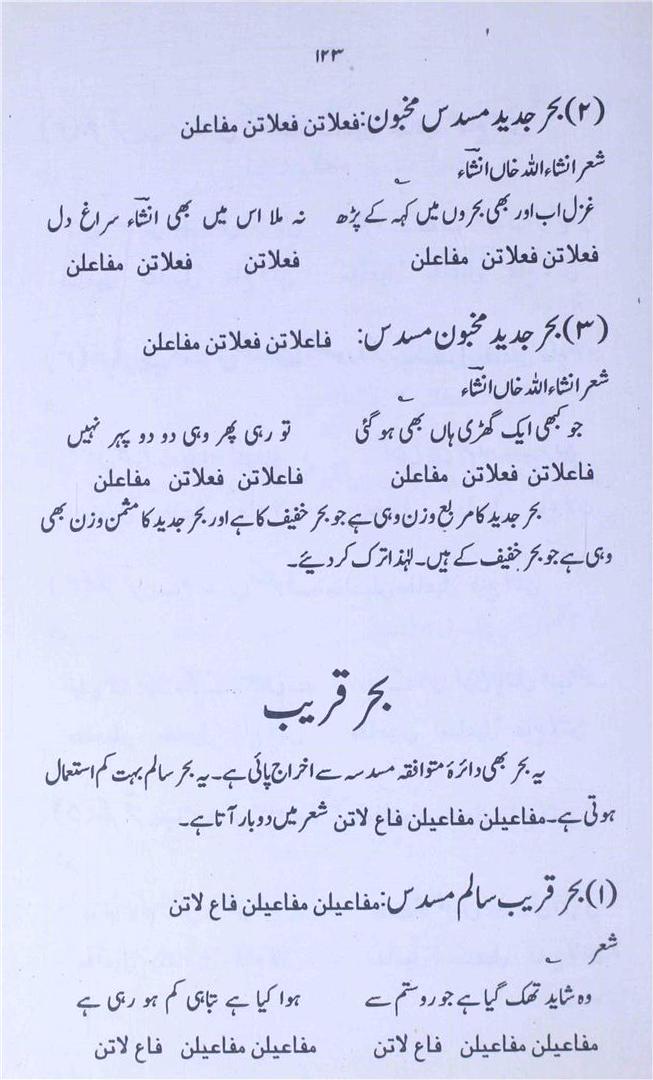 ۱۲۳
(۲) بحر جدید مسدس مخبون: فعلاتن فعلاتن مفاعلن
شعر انشاء اللہ خاں انشاء
غزل اب اور بھی بحروں میں کہہ کے پڑھ نہ ملا اس میں بھی انشاء سراغ دل
فعلاتن فعلاتن مفاعلن فعلاتن فعلاتن مفاعلن
(۳) بحر جدید مخبون مسدس: فاعلاتن فعلاتن مفاعلن
شعر انشاء اللہ خاں انشاء
جو کبھی ایک گھڑی ہاں بھی ہو گئی تو رہی پھر وہی دو دو پہر نہیں
فاعلاتن فعلاتن مفاعلن فاعلاتن فعلاتن مفاعلن
بحر جدید کا مربع وزن وہی ہے جو بحر خفیف کا ہے اور بحر جدید کا مثمن وزن بھی
وہی ہے جو بحر خفیف کے ہیں۔ لہٰذا ترک کر دیئے۔
بحر قریب
یہ بحر بھی دائرۂ متوافقہ مسدسہ سے اخراج پائی ہے۔ یہ بحر سالم بہت کم استعمال
ہوتی ہے۔ مفاعیلن مفاعیلن فاع لاتن شعر میں دو بار آتا ہے۔
(۱) بحر قریب سالم مسدس: مفاعیلن مفاعیلن فاع لاتن
شعر
وہ شاید تھک گیا ہے جو روستم سے ہوا کیا ہے تباہی کم ہو رہی ہے
مفاعیلن مفاعیلن فاع لاتن مفاعیلن مفاعیلن فاع لاتن